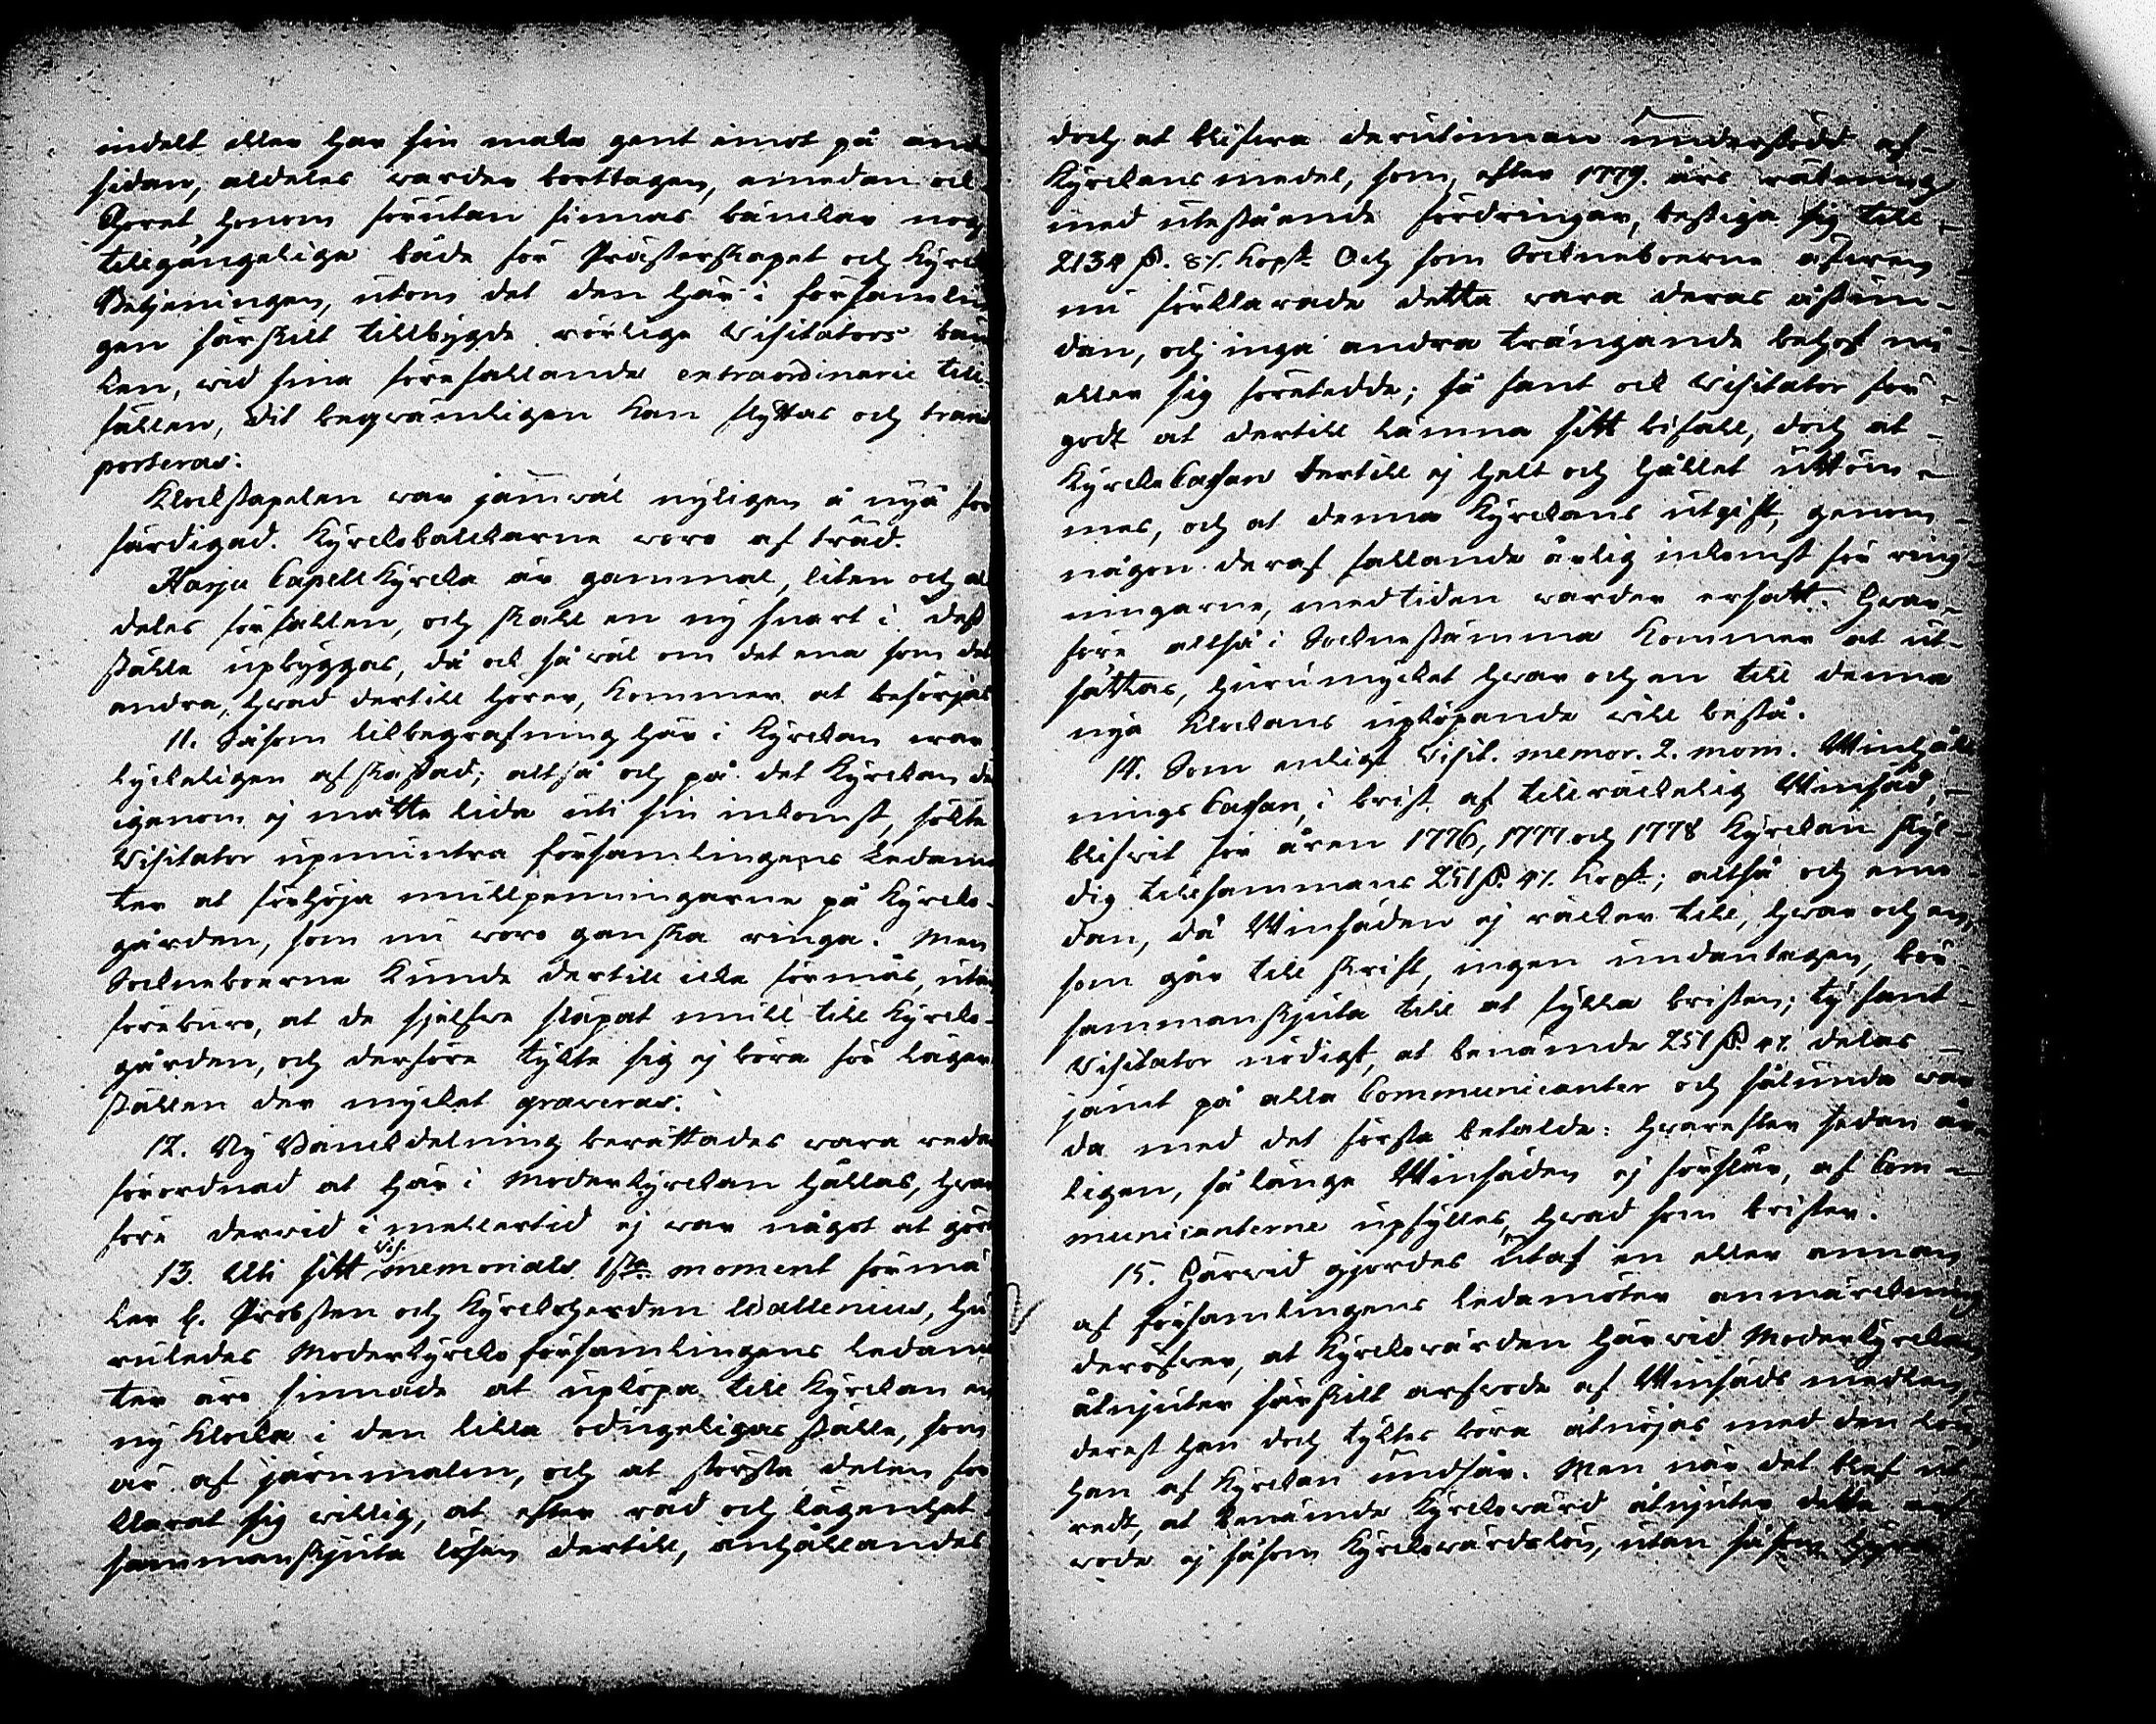 indelt eller har sin make gent emot på andr
sidan, aldeles warder borttagen, emedan ock
Choret honom förutan finnas bänckar nog
tillgängelige både för Prästerskapet och Kyrck
Betjeningen, utom det den här i församlin
gen särskilt tillbygde rörlige Visitators bän
ken, wid sina förefallande extraordinarie till-
fällen, dit beqwämligen kan flyttas och trans
porteras.
Klockstapelen war jämwäl nyligen å nyo för
färdigad. Kyrckobalckarne woro af träd.
Harju Capell Kyrcka är gammal, liten och al
deles förfallen, och skall en ny snart i dess
ställe upbyggas, då ock så wäl om det ena som det
andra, hwad dertill hörer, kommer at besörjas
11. Såsom likbegrafning här i Kyrckan war
lyckeligen afskaffad; altså och på det Kyrckan de
igenom ej måtte lida uti sin inkomst, sökte
Visitator upmuntra församlingens Ledamö
ter at förhöja mullpenningarne på Kyrcko-
gården, som nu woro ganska ringa. Men
Sockneboerne kunde dertill icke förmås, utan
föreburo, at de sjelfwe släpat mull till Kyrcko-
gården, och derföre tyckte sig ej böra för läger
ställen der mycket graveras.
12. Ny Bänckdelning berättades wara redan
förordnad at här i Moderkyrckan hållas, hwar
före derwid i medlertid ej war något at göra
13. Uti sitt Vis. memorials 1sta moment förmä
ler H. Probsten och Kyrckoherden Wallenius, hu
ruledes Moderkyrcko församlingens Ledamö
ter äro sinnade at upköpa till Kyrckan en
ny Klocka i den lilla odugeligas ställe, som
är af järnmalm, och at största delen för
klarat sig willig, at efter råd och lägenhet
sammanskjuta lösen dertill, anhållandes
doch at blifwa derutinnan understödd af
Kyrckans medel, som, efter 1779 års räkning
med utestående fordringar, bestiga sig till
2134 D. 8/. kopst. Och som Sockneboerne äfwen
nu förklarade detta wara deras åstun-
dan, och inga andra trängande behof nu
eller sig företedde; så fant ock Visitator för
godt at dertill lämna sitt bifall, doch at
Kyrcko Cassan dertill ej helt och hållet uttöm-
mes, och at denna Kyrckans utgift, genom
någon deraf fallande årlig inkomst för ring-
ningarne, med tiden warder ersatt. Hwar-
före altså i Socknestämma kommer at ut-
sättas, huru mycket hwar och en till denna
nya Klockans upköpande will bestå.
14. Som enligt Visit. memor. 2. mom. Winhåll
nings Cassan, i brist af tillräckelig Winsäd,
blifwit för åren 1776, 1777 och 1778 Kyrckan skyl-
dig tillsammans 251 D. 4/. kopst.; altså och eme
dan, då Winsäden ej räcker till, hwar och en,
som går till skrift, ingen undantagen, bör
sammanskjuta till at fylla bristen; ty fant
Visitator nödigt, at benämde 251 D. 4/. delas
jämt på alla Communicanter och sålunda war
da med det första betalde: hwarefter sedan år-
ligen, så länge Winsäden ej förslår, af Com-
municanterne upfylles, hwad som brister.
15. Härwid gjordes utaf en eller annan
af församlingens ledamöter anmärckning
deröfwer, at Kyrckowärden här wid Moderkyrckan
åtnjuter särskilt arfwode af Winsäds medlen,
derest han doch tycktes böra åtnöjas med den lön,
han af Kyrckan undfår. Men när det blef ut
redt, at benämde Kyrckowärd åtnjuter detta arf
wode ej såsom Kyrckowärdslön, utan såsom